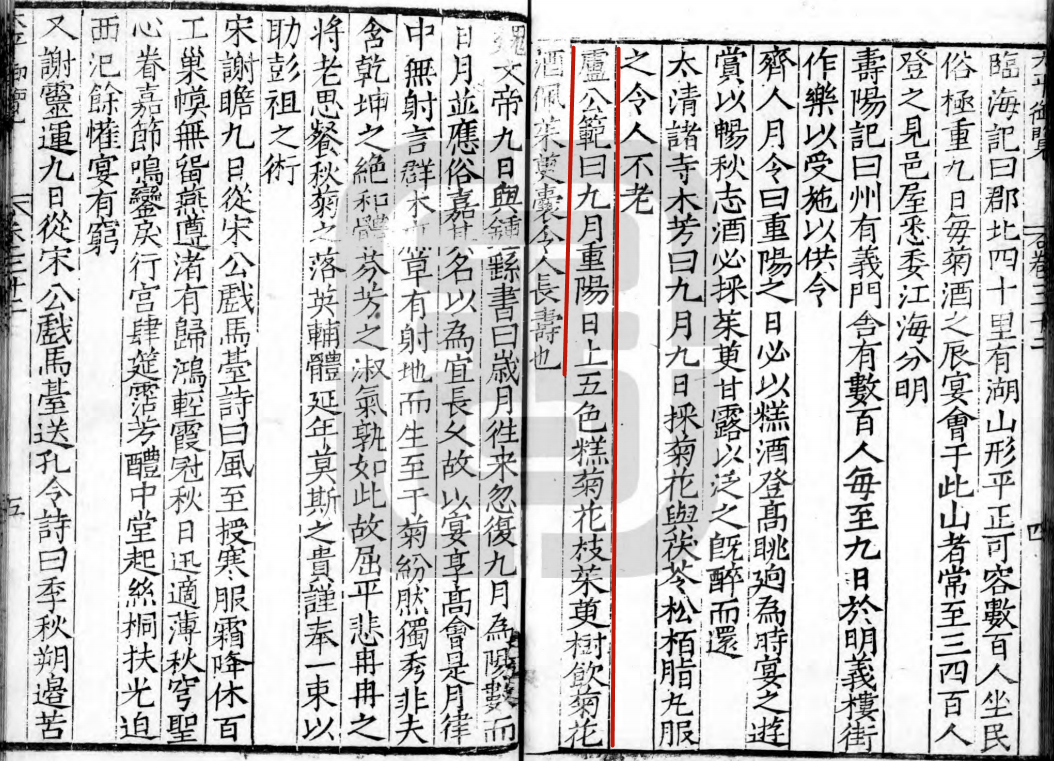 臨海記曰郡北四十里有湖山形平正可容數百人坐民
俗極重九日毎菊酒之辰宴會于此山者常至三四百人
登之見邑屋悉委江海分明
壽陽記曰州有義門舍有數百人毎至九日於明義樓街
作樂以受施以供令
齊人月令曰重陽之日必以糕酒登高眺逈為時宴之遊
賞以暢秋志酒必採茱萸甘露以泛之旣醉而還
太清諸寺木芳曰九月九日採菊花與茯苓松栢脂丸服
之令人不老
盧公範曰九月重陽日上五色糕菊花枝茱萸樹飲菊花
酒佩茱萸囊令人長壽也
魏文帝九日與鍾繇書曰歳月徃来忽復九月為陽數而
日月並應俗嘉其名以為宜長乆故以宴享高會是月律
中無射言群木草有射地而生至于菊紛然獨秀非夫
含乾坤之絶和體芬芳之淑氣孰如此故屈平悲冉冉之
將老思餐秋菊之落英輔體延年莫斯之貴謹奉一束以
助彭祖之術
宋謝瞻九日從宋公戲馬臺詩曰風至授寒服霜降休百
工巢幙無留燕遵渚有歸鴻輕霞冠秋日迅適薄秋穹聖
心眷嘉節鳴鑾戾行宫肆筵霑芳醴中堂起絲桐扶光迫
西汜餘懽宴有窮
又謝靈運九日從宋公戲馬臺送孔令詩曰季秋朔邉苦
五